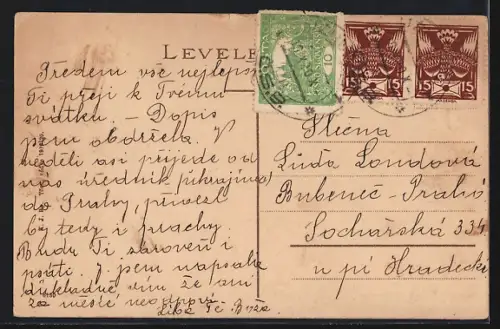 LEVELE
15
15
10
Předem vše nejlepší
Ti přeji k Tvému
svátku. – Dopis
jsem obdržela. V
neděli asi přijede od
nás úředník
do Prahy, přivezl
by tedy i prachy.
Budu Ti zároveň i
psáti. J. jsem napsala
důkladně vím že ani
za měsíc neodpoví.
Slečna
Luďa Londová
Bubeneč - Praha
Sochařská 334
u pí Hradecké